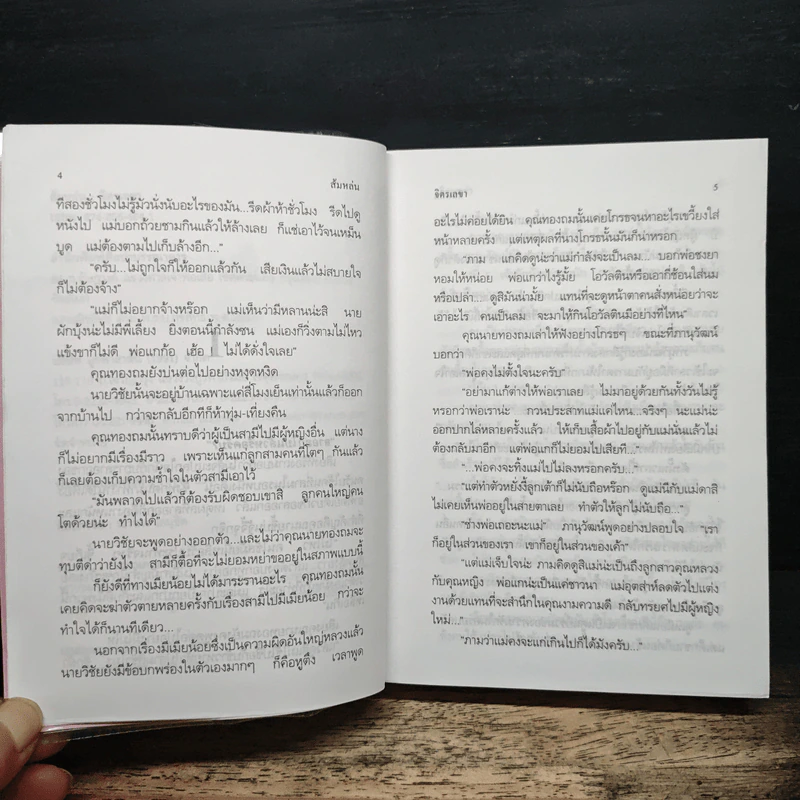 4
ส้มหล่น
ที่สองชั่วโมงไม่รู้มัวนั่งนับอะไรของมัน...รีดผ้าห้าชั่วโมง รีดไปดู
หนังไป แม่บอกถ้วยชามกินแล้วให้ล้างเลย ก็แช่เอาไว้จนเหม็น
บูด แม่ต้องตามไปเก็บล้างอีก..."
"ครับ...ไม่ถูกใจก็ให้ออกแล้วกัน เสียเงินแล้วไม่สบายใจ
ก็ไม่ต้องจ้าง"
"แม่ก็ไม่อยากจ้างหร๊อก แม่เห็นว่ามีหลานน่ะสิ นาย
ผักบุ้งน่ะไม่มีพี่เลี้ยง ยิ่งตอนนี้กำลังซน แม่เองก็วิ่งตามไม่ไหว
แข้งขาก็ไม่ดี พ่อแกก้อ เฮ้อ ไม่ได้ดั่งใจเลย"
คุณทองถมยังบ่นต่อไปอย่างหงุดหงิด
นายวิชัยนั้นจะอยู่บ้านเฉพาะแค่สี่โมงเย็นเท่านั้นแล้วก็ออก
จากบ้านไป กว่าจะกลับอีกทีก็ห้าทุ่ม-เที่ยงคืน
คุณทองถมนั้นทราบดีว่าผู้เป็นสามีไปมีผู้หญิงอื่น แต่นาง
ก็ไม่อยากมีเรื่องมีราว เพราะเห็นแก่ลูกสามคนที่โตๆ กันแล้ว
ก็เลยต้องเก็บความช้ำใจในตัวสามีเอาไว้
"มันพลาดไปแล้วก็ต้องรับผิดชอบเขาสิ ลูกคนใหญ่คน
โตด้วยน่ะ ทำไงได้"
นายวิชัยจะพูดอย่างออกตัว...และไม่ว่าคุณนายทองถมจะ
ทุบตีด่าว่ายังไง สามีก็ดื้อที่จะไม่ยอมหย่าขออยู่ในสภาพแบบนี้
ก็ยังดีที่ทางเมียน้อยไม่ได้มาระรานอะไร คุณทองถมนั้น
เคยคิดจะฆ่าตัวตายหลายครั้งกับเรื่องสามีไปมีเมียน้อย กว่าจะ
ทำใจได้ก็นานทีเดียว...
นอกจากเรื่องมีเมียน้อยซึ่งเป็นความผิดอันใหญ่หลวงแล้ว
นายวิชัยยังมีข้อบกพร่องในตัวเองมากๆ ก็คือหูตึง เวลาพูด
จิตรเลขา
5
อะไรไม่ค่อยได้ยิน คุณทองถมนั้นเคยโกรธจนหาอะไรเขวี้ยงใส่
หน้าหลายครั้ง แต่เหตุผลที่นางโกรธนั้นมันก็น่าหรอก
"ภาม แกคิดดูน่ะว่าแม่กำลังจะเป็นลม... บอกพ่อชงยา
หอมให้หน่อย พ่อแกว่าไงรู้มั้ย โอวัลตินหรือเอากี่ช้อนใส่นม
หรือเปล่า... ดูสิมันน่ามั้ย แทนที่จะดูหน้าตาคนสั่งหน่อยว่าจะ
เอาอะไร คนเป็นลม จะมาให้กินโอวัลตินมีอย่างที่ไหน"
คุณนายทองถมเล่าให้ฟังอย่างโกรธๆ ขณะที่ภานุวัฒน์
บอกว่า
"พ่อคงไม่ตั้งใจนะครับ"
"อย่ามาแก้ต่างให้พ่อเราเลย ไม่มาอยู่ด้วยกันทั้งวันไม่รู้
หรอกว่าพ่อเราน่ะ กวนประสาทแม่แค่ไหน...จริงๆ นะแม่น่ะ
ออกปากไล่หลายครั้งแล้ว ให้เก็บเสื้อผ้าไปอยู่กับแม่นั่นแล้วไม่
ต้องกลับมาอีก แต่พ่อแกก็ไม่ยอมไปเสียที..."
"...พ่อคงจะทิ้งแม่ไปไม่ลงหรอกครับ..."
"แต่ทำตัวหยั่งงี้ลูกเต้าก็ไม่นับถือหร๊อก ดูแม่นีกับแม่ดาสิ
ไม่เคยเห็นพ่ออยู่ในสายตาเลย ทำตัวให้ลูกไม่นับถือ..."
"ช่างพ่อเถอะนะแม่" ภานุวัฒน์พูดอย่างปลอบใจ "เรา
ก็อยู่ในส่วนของเรา เขาก็อยู่ในส่วนของเค้า"
"แต่แม่เจ็บใจน่ะ ภามคิดดูสิแม่น่ะเป็นถึงลูกสาวคุณหลวง
กับคุณหญิง พ่อแกน่ะเป็นแค่ชาวนา แม่อุตส่าห์ลดตัวไปแต่ง
งานด้วยแทนที่จะสำนึกในคุณงามความดี กลับทรยศไปมีผู้หญิง
ใหม่..."
"ภามว่าแม่คงจะแก่เกินไปก็ได้มังครับ..."